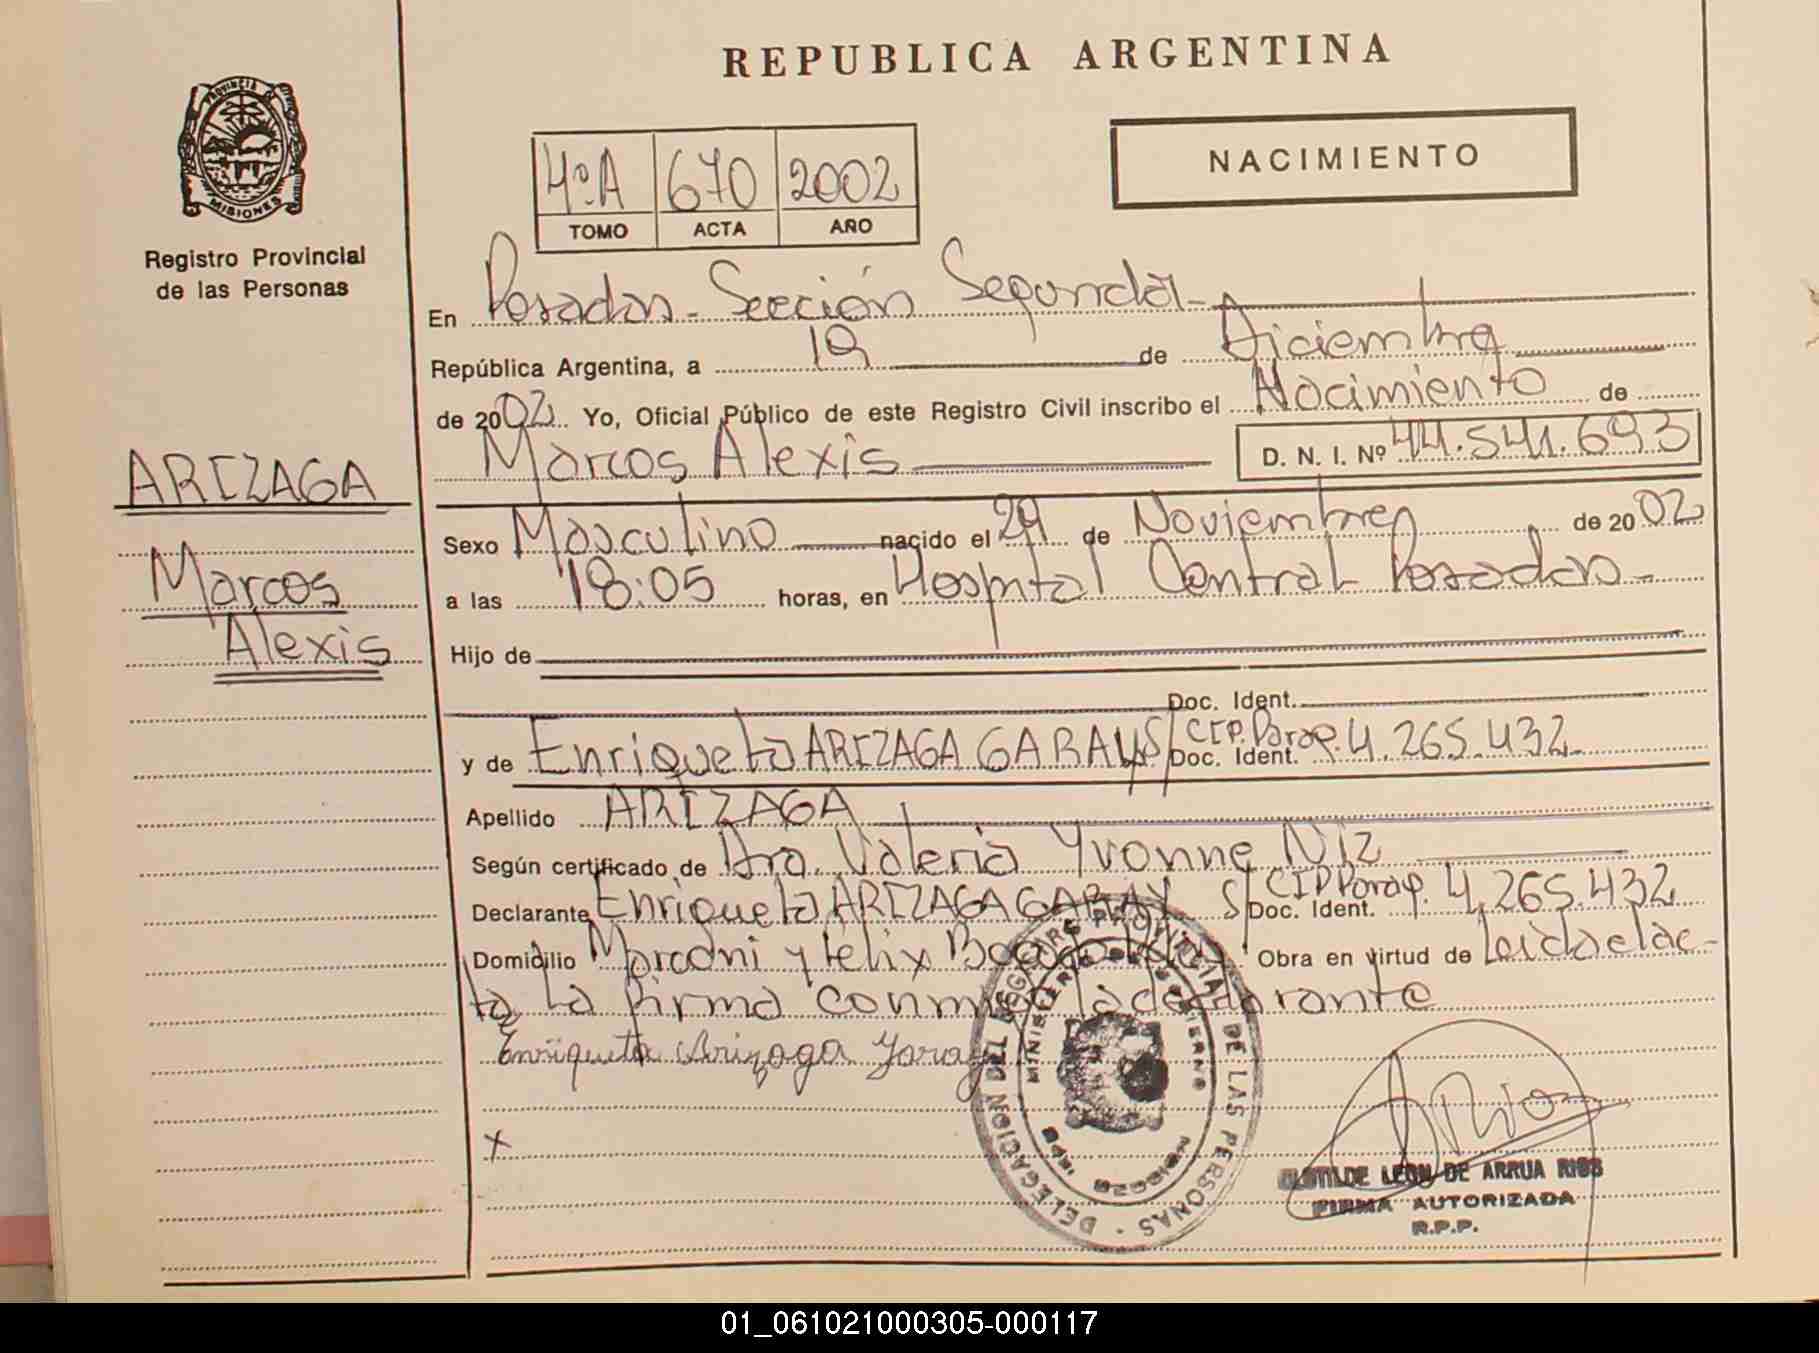 REPUBLICA ARGENTINA
PROVINCIA DE
MISIONES
Registro Provincial
de las Personas
4º A 670 2002
TOMO ACTA AÑO
NACIMIENTO
En Posadas - Sección Segunda -
República Argentina, a 19 de Diciembre
de 2002. Yo, Oficial Público de este Registro Civil inscribo el Nacimiento de
Marcos Alexis D. N. I. Nº 44.541.693
ARIZAGA
Marcos
Alexis
Sexo Masculino nacido el 29 de Noviembre de 2002
a las 18:05 horas, en Hospital Central Posadas -
Hijo de
Doc. Ident.
y de Enriqueta ARIZAGA GARAY S/ Doc. Ident. CIP. Parag. 4.265.432
Apellido ARIZAGA
Según certificado de Dra. Valeria Yvonne Niz
Declarante Enriqueta ARIZAGA GARAY S/ Doc. Ident. CIP Parag. 4.265.432
Domicilio Marconi y Félix Obra en virtud de Leida el ac-
ta la firma conmigo la declarante
Enriqueta Arizaga Garay
X
DELEGACION DEL REGISTRO PROVINCIAL DE LAS PERSONAS
MINISTERIO DE GOBIERNO
MISIONES
CLOTILDE LEON DE ARRUA RIOS
FIRMA AUTORIZADA
R.P.P.
01_061021000305-000117